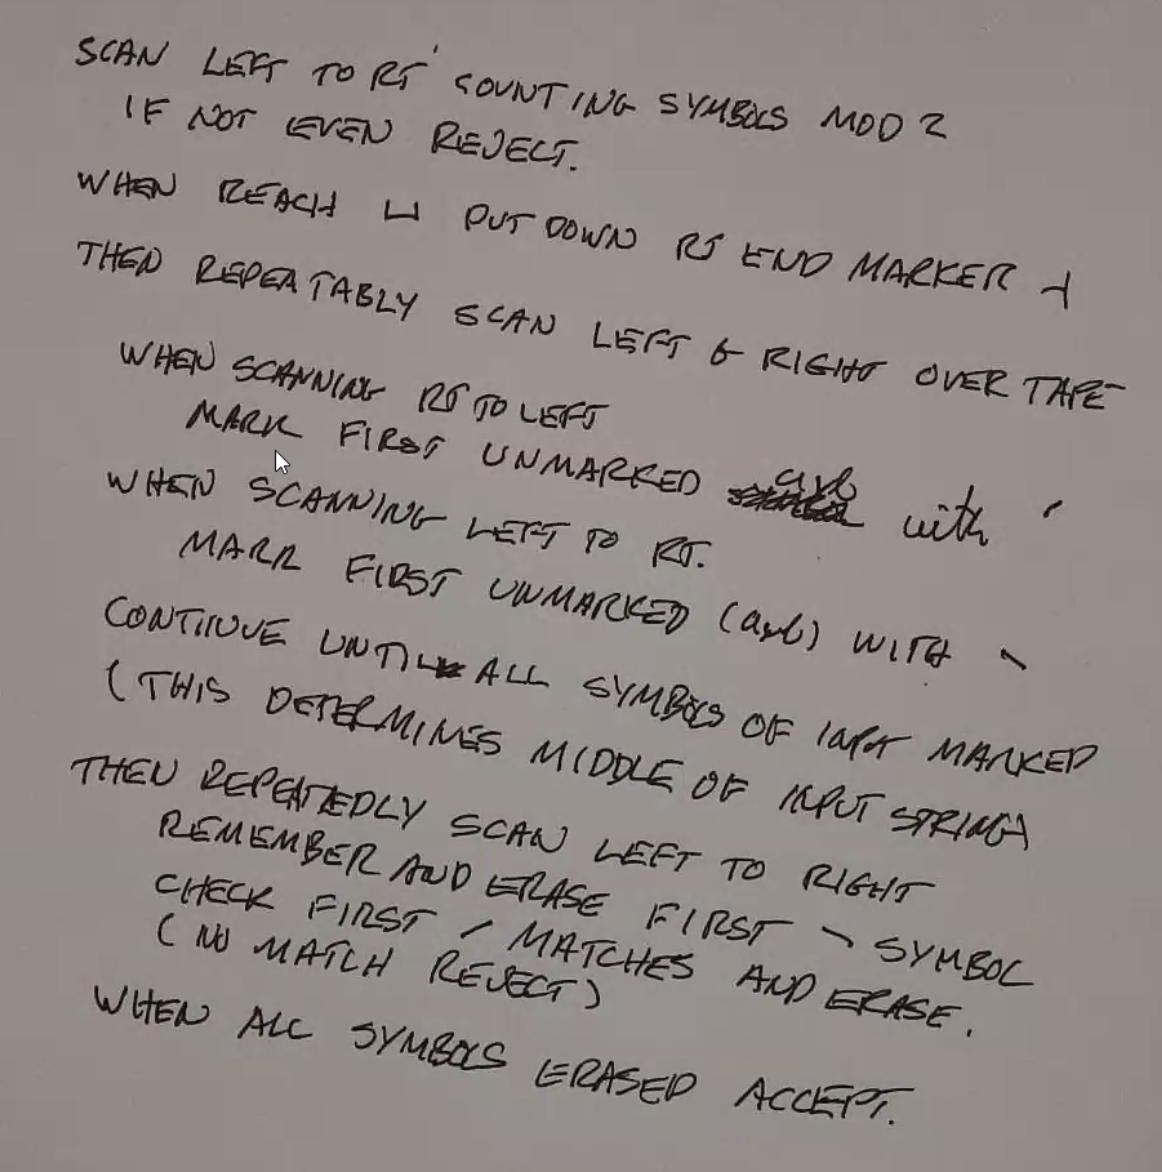 SCAN LEFT TO RT COUNTING SYMBOLS MOD 2
IF NOT EVEN REJECT.
WHEN REACH ⊔ PUT DOWN RT END MARKER ⊣
THEN REPEATABLY SCAN LEFT & RIGHT OVER TAPE
WHEN SCANNING RT TO LEFT
MARK FIRST UNMARKED a,b with ´
WHEN SCANNING LEFT TO RT.
MARK FIRST UNMARKED (a,b) WITH `
CONTINUE UNTIL ALL SYMBOLS OF INPUT MARKED
(THIS DETERMINES MIDDLE OF INPUT STRING)
THEN REPEATEDLY SCAN LEFT TO RIGHT
REMEMBER AND ERASE FIRST ` SYMBOL
CHECK FIRST ´ MATCHES AND ERASE.
(NO MATCH REJECT)
WHEN ALL SYMBOLS ERASED ACCEPT.